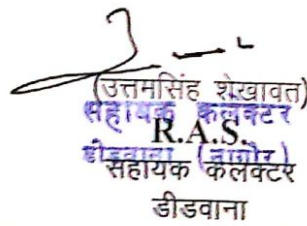 (उत्तमसिंह शेखावत)
सहायक कलक्टर
R.A.S.
डीडवाना (नागौर)
सहायक कलक्टर
डीडवाना